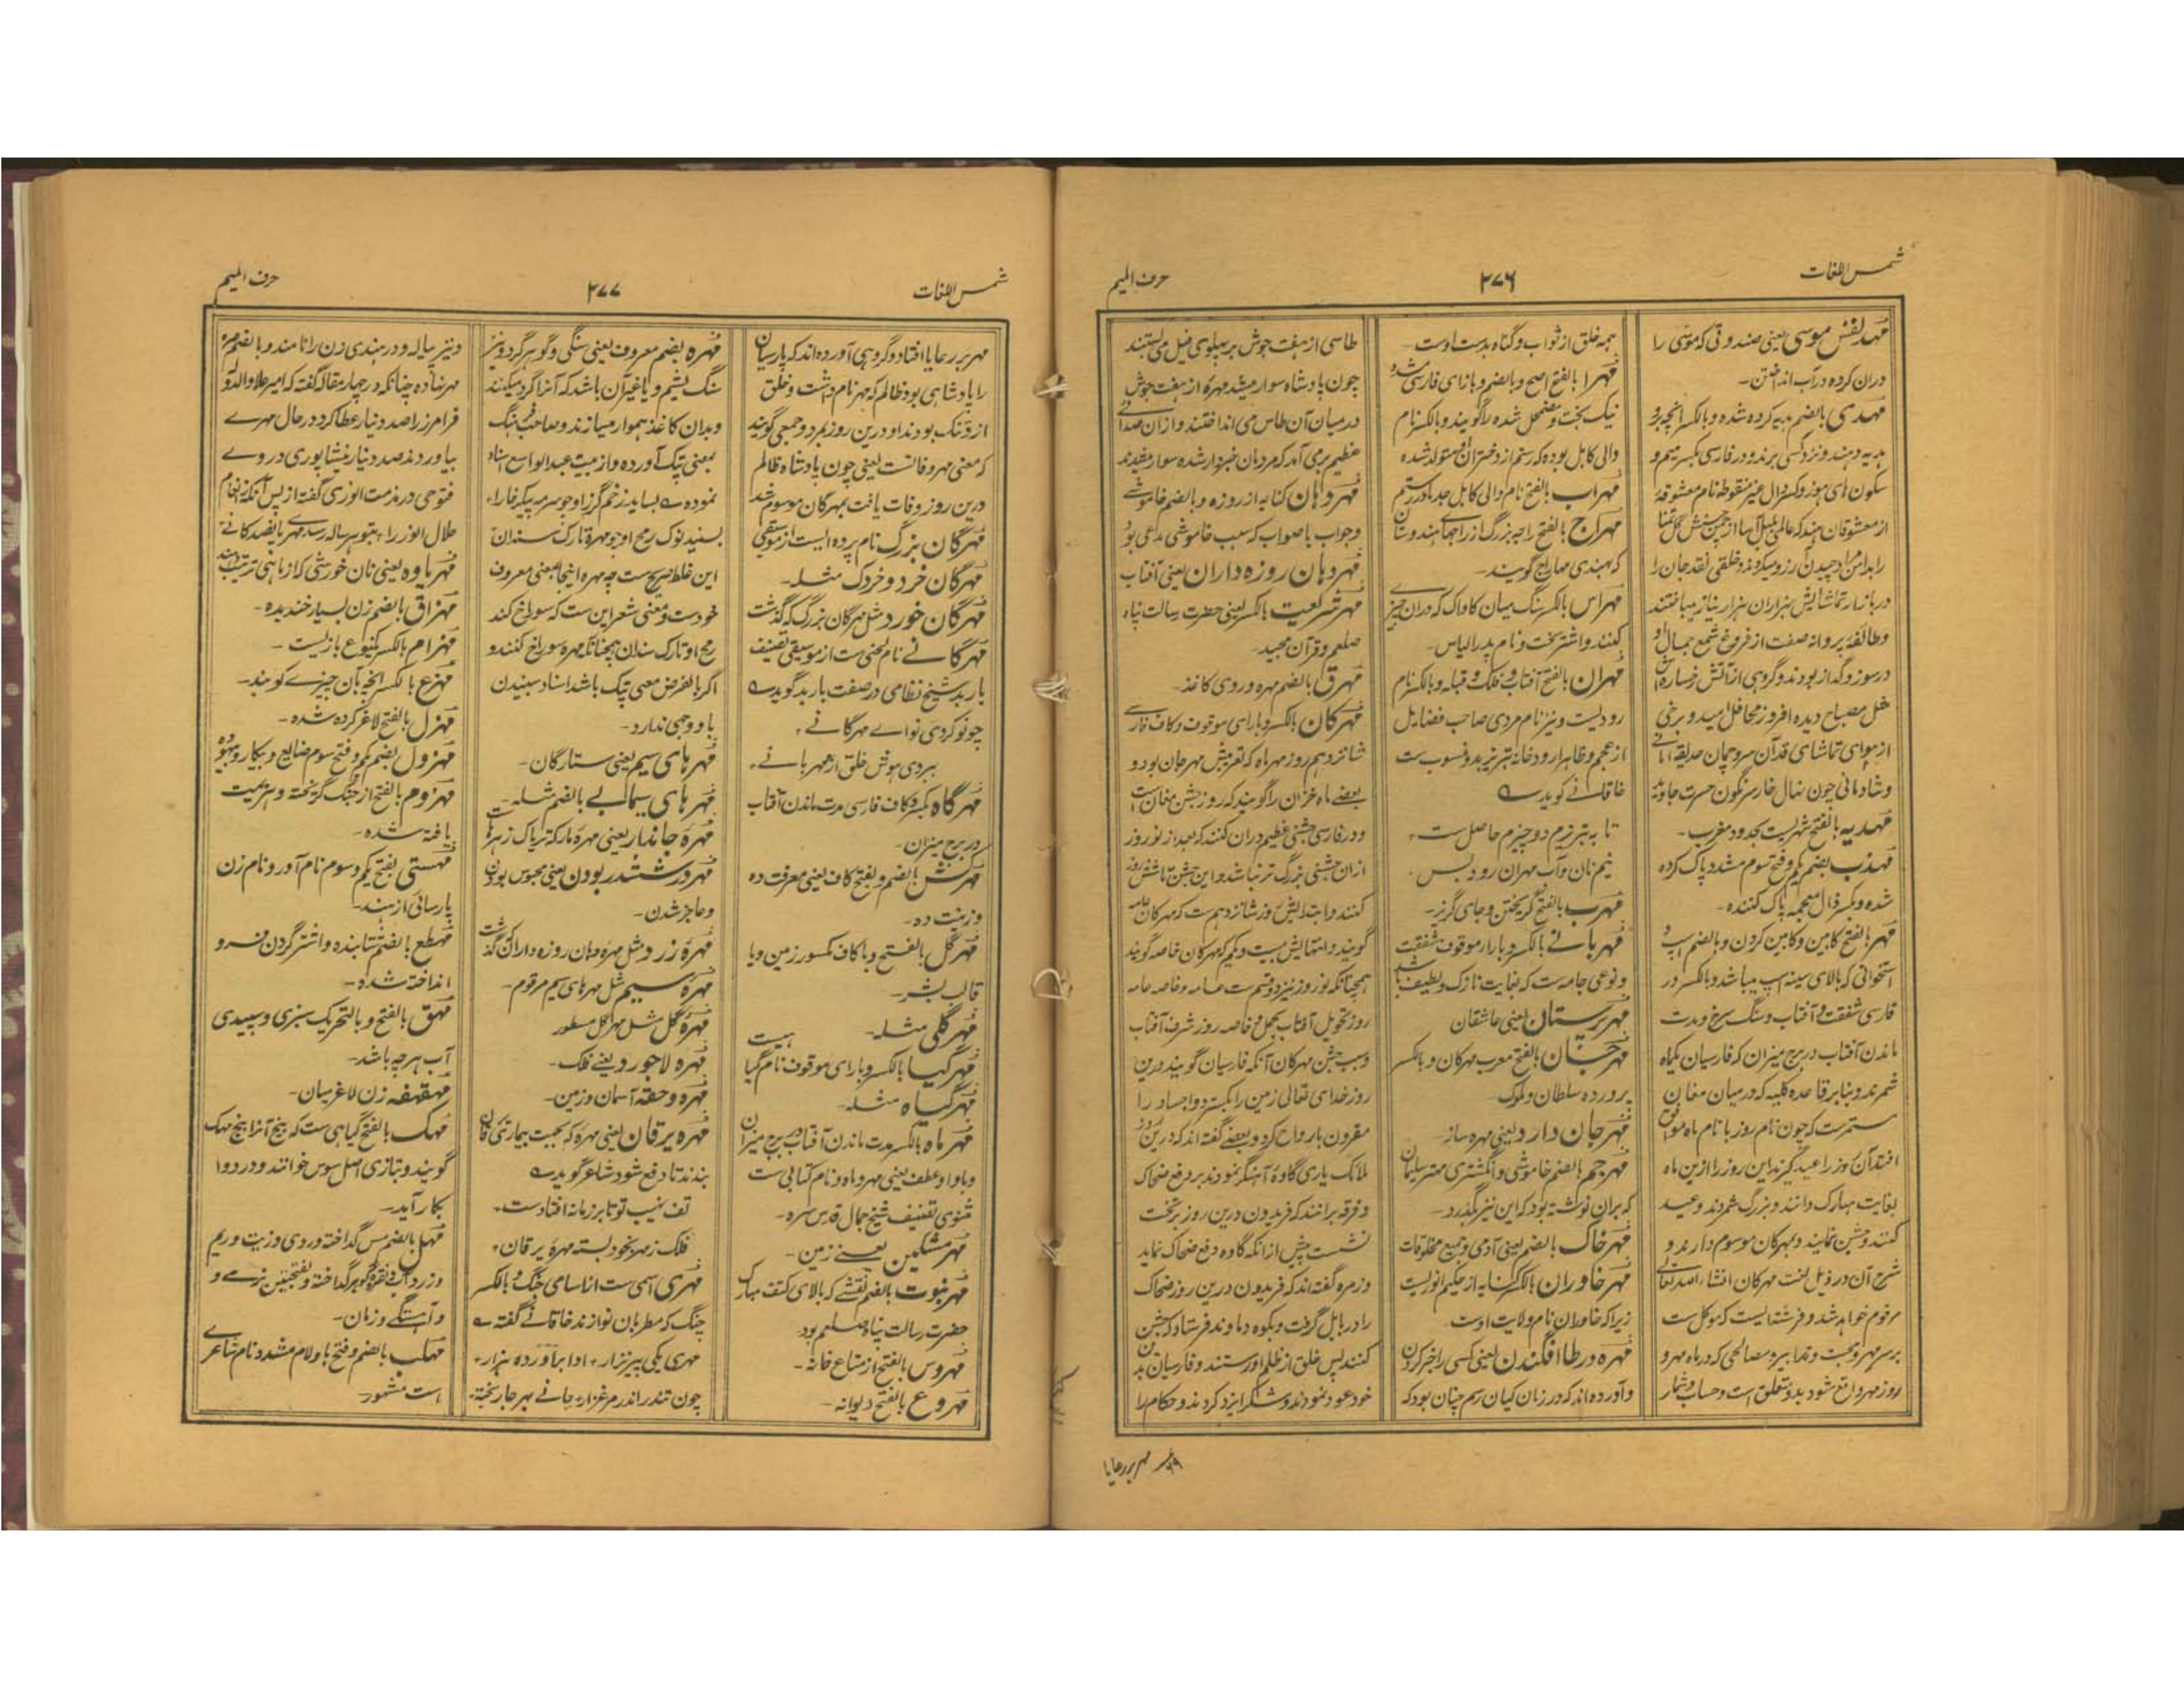 شمس اللغات
۲۷۶
حرف المیم
مهد نفس موسی یعنی صندوقی که موسی را
دران کرده درآب انداختن۔
مهدی بالضم هدیه کرده شده و بالکسر انچه برو
هدیه دهند و نزد کسی برند و در فارسی بکسر میم و
سکون های هوز و کسر دال غیر منقوطه نام معشوقهٔ
در بازار تماشایش هزاران هزار نیاز میباختند
و طائفهٔ پروانه صفت از فروغ شمع جمال او
در سوز و گداز بودند و گروهی از آتش رخساره اش
مثل مصباح دیده افروز محافل امید و برخی
و شادمانی چون نهال خار سرنگون حسرت جاوید
مهدیه بالفتح شهریست بحدود مغرب۔
مهذب بضم یکم و فتح سوم مشدد پاک کرده
شده و بکسر ذال معجمه پاک کننده۔
مهر بالفتح کابین و کابین کردن و بالضم اسپ و
استخوانی که بالای سینه اسپ میباشد و بالکسر در
فارسی شفقت و آفتاب و سنگ سرخ و مدت
ماندن آفتاب در برج میزان که فارسیان یکماه
شمرند و بنابر قاعده کلیه که درمیان مغان
مستمرست که چون نام روز با نام ماه موافق
افتد آن روز را عید گیرند این روز را ازین ماه
بغایت مبارک دانند و بزرگ شمردند و عید
کنند و جشن نمایند و بمهرکان موسوم دارند و
شرح آن در ذیل لغت مهرکان انشاء الله تعالی
مرقوم خواهد شد و فرشته ایست که موکل ست
بر مهر و محبت و تدابیر و مصالحی که در ماه مهر و
روز مهر واقع شود بدو متعلق است و حساب و شمار
همه خلق از ثواب و گناه بدست اوست۔
مهرا بالفتح اصح و بالضم و بازای فارسی
نیک پخت و مضمحل شده را گویند و بالکسر نام
والی کابل بوده که رستم از دختر او متولد شده
مهراب بالفتح نام والی کابل جد مادر رستم
مهراج بالفتح راجه بزرگ از راجهای هندوستان
که بهندی مهاراج گویند۔
مهراس بالکسر سنگ میان کاواک که دران چیزی
کنند و اشتر سخت و نام پدر الیاس۔
مهران بالفتح آفتاب و فلک و قبله و بالکسر نام
رودیست و نیز نام مردی صاحب فضایل
از عجم و ظاهرا رودخانه تبریز بدو منسوب ست
خاقانی گوید ے
تا به تبریزم دو چیزم حاصل ست ٭
نیم نان و آب مهران رود بس ٭
مهرب بالفتح گریختن و جای گریز۔
مهربانی بالکسر و بارا موقوف شفقت
و نوعی جامه ست که بغایت نازک و لطیف باشد
مهرپرستان یعنی عاشقان
مهرجان بالفتح معرب مهرکان و بالکسر
پرورده سلطان و ملوک
مهرجان دارو یعنی مهره ساز۔
مهرجم بالضم خاموشی و انگشتری مهتر سلیمان
که بران نوشته بود که این نیز بگذرد۔
مهرخاک بالضم یعنی آدمی و جمیع مخلوقات
مهرخاوران بالکسر کنایه از حکیم انوریست
زیرا که خاوران نام ولایت اوست
مهره در طاس افگندن یعنی کسی را خبر کردن
و آورده اند که در زمان کیان رسم چنان بود که
طاسی از هفت جوش بر پهلوی فیل می بستند
چون پادشاه سوار میشد مهرهٔ از هفت جوش
در میان آن طاس می انداختند و ازان صدای
عظیم برمی آمد که مردمان خبردار شده سوار میشدند
مهردهان کنایه از روزه و بالضم خاموشی
و جواب باصواب که سبب خاموشی مدعی بود
مهردهان روزه داران یعنی آفتاب
مهر شریعت بالکسر یعنی حضرت رسالت پناه
صلعم و قرآن مجید۔
مهرق بالضم مهره و روی کاغذ۔
مهرکان بالکسر و بارای موقوف و کاف فارسی
شانزدهم روز مهرماه که تعریبش مهرجان بود و
بعضی ماه خزان را گویند که روز جشن مغان است
و در فارسی جشنی عظیم دران کنند که بعد از نوروز
ازان جشنی بزرگ تر نباشد و این جشن تا شش روز
کنند و ابتدایش روز شانزدهم ست که مهرکان عامه
گویند و انتهایش بیست و یکم که مهرکان خاصه گویند
همچنانکه نوروز نیز دو قسم ست عامه و خاصه عامه
روز تحویل آفتاب بحمل و خاصه روز شرف آفتاب
و سبب جشن مهرکان آنکه فارسیان گویند درین
روز خدای تعالی زمین را بگسترد و اجساد را
مقرون بارواح کرد و بعضی گفته اند که درین روز
ملائک یاری گاوهٔ آهنگر نمودند بر دفع ضحاک
و فرقه برانند که فریدون درین روز بر تخت
نشست پیش ازانکه گاوه دفع ضحاک نماید
و زمره گفته اند که فریدون درین روز ضحاک
را در بابل گرفت و بکوه دماوند فرستاد که جشن
کنند پس خلق از ظلم او رستند و فارسیان بدین
خود عود نمودند و شکر ایزد کردند و حکام را
مهر بر رعایا
شمس اللغات
۲۷۷
حرف المیم
مهر بر رعایا افتاد و گروهی آورده اند که پارسیان
را پادشاهی بود ظالم که مهر نام داشت و خلق
از و تنگ بودند او درین روز بمرد و جمعی گویند
که معنی مهر وفاتست یعنی چون پادشاه ظالم
درین روز وفات یافت بمهرگان موسوم شد
مهرگان بزرگ نام پرده ایست از موسیقی
مهرگان خرد و خردک مثله۔
مهرگان خورد مثل مهرگان بزرگ که گذشت
مهرگانی نام لحنی ست از موسیقی تصنیف
باربد شیخ نظامی در صفت باربد گوید ے
چو نو کردی نوای مهرگانی ٭
ببردی هوش خلق از مهربانی ٭
مهرگاه بکسر و کاف فارسی مدت ماندن آفتاب
در برج میزان۔
مهرکش بالضم و بفتح کاف یعنی معرفت ده
و زینت ده۔
مهرگل بالفتح و با کاف مکسور زمین و یا
قالب بشر۔
مهرگلی مثله۔
مهرگیا بالکسر و بارای موقوف نام گیاهیست
مهرگیاه مثله۔
مهرماه بالکسر مدت ماندن آفتاب در برج میزان
و باواو عطف یعنی مهر و ماه و نام کتابی ست
مثنوی تصنیف شیخ جمال قدس سره۔
مهر مشکین یعنی زمین۔
مهر نبوت بالضم نقشی که بالای کتف مبارک
حضرت رسالت پناه صلعم بود
مهروس بالفتح از متاع خانه۔
مهروع بالفتح دیوانه۔
مهره بضم معروف یعنی سنگی و گوهر گرد و نیز
سنگ یشم و یا غیر آن باشد که آنرا گرد میکنند
و بدان کاغذ هموار میسازند و صاحب فرهنگ
بمعنی پتک آورده و از بیت عبدالواسع اسناد
این غلط صریح ست چه مهره اینجا بمعنی معروف
خودست و معنی شعر این ست که سوراخ کند
رمح او تارک سندان همچنانکه مهره سوراخ کنند و
اگر بالفرض معنی پتک باشد اسناد سنبیدن
باو وجهی ندارد۔
مهرهای سیم یعنی ستارگان۔
مهرهای سیمابی بالضم مثله۔
مهره جاندار یعنی مهرهٔ مار که تریاک زهرهاست
مهره در ششدر بودن یعنی محبوس بودن
و عاجز شدن۔
مهره زرد مثل مهر دهان روزه داران که گذشت
مهره سیم مثل مهرهای سیم مرقوم۔
مهره گل مثل مهرگل مسطور
مهره لاجورد یعنی فلک۔
مهره و حقه آسمان و زمین۔
مهره یرقان یعنی مهره که بجهت بیماری یرقان
بندند تا دفع شود شاعر گوید ے
تف نهیب تو تا بر زمانه افتادست ٭
فلک ز مهر بخود بسته مهرهٔ یرقان ٭
مهری اسمی ست از اسامی چنگ و بالکسر
چنگ که مطربان نوازند خاقانی گفته ے
و نیز پیاله و در هندی زن را نامند و بالضم مهر
مهر نهاده چنانکه در چهار مقاله گفته که امیر علاءالدوله
فرامرز را صد دنیار عطا کرد در حال مهری
بیاوردند صد دنیار نیشاپوری در وے
مهریاوه یعنی نان خورشی که از ماهی ترتیب دهند
مهزاق بالضم زن بسیار خندیده۔
مهزام بالکسر یکنوع بازیست۔
مهزع بالکسر انچه بآن چیزے کوبند۔
مهزل بالفتح لاغر کرده شده۔
مهزول بضم یکم و فتح سوم ضایع و بیکار و بیهوده
مهزوم بالفتح از جنگ گریخته و هزیمت
یافته شده۔
مهستی بفتح یکم و سوم نام آور و نام زن
پارسائی از هند۔
مهطع بالضم شتابنده و اشتر گردن فرو
انداخته شده۔
مهق بالفتح و بالتحریک سبزی و سپیدی
آب هرچه باشد۔
مهفهفه زن لاغر میان۔
مهک بالفتح گیاهی ست که بیخ آنرا بیخ مهک
گویند و بتازی اصل سوس خوانند و در دوا
بکار آید۔
مهل بالضم مس گداخته و دردی و زیت و ریم
و زرداب و نقره و گوهر گداخته و بفتحتین نرمی و
و آهستگی و زمان۔
مهلب بالضم و فتح ها و لام مشدد نام شاعر
است مشهور۔